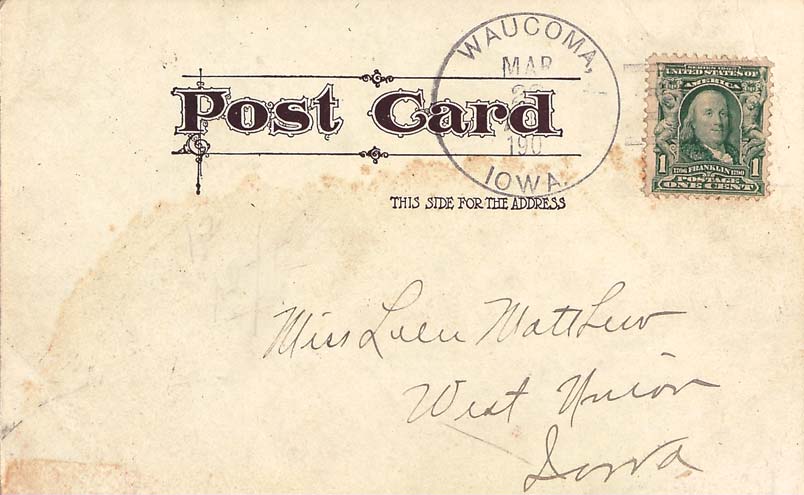 WAUCOMA,
MAR
190
IOWA.
Post Card
THIS SIDE FOR THE ADDRESS
UNITED STATES OF
AMERICA
1 1706 FRANKLIN 1790 1
POSTAGE
ONE CENT
Miss Matthew
West Union
Iowa